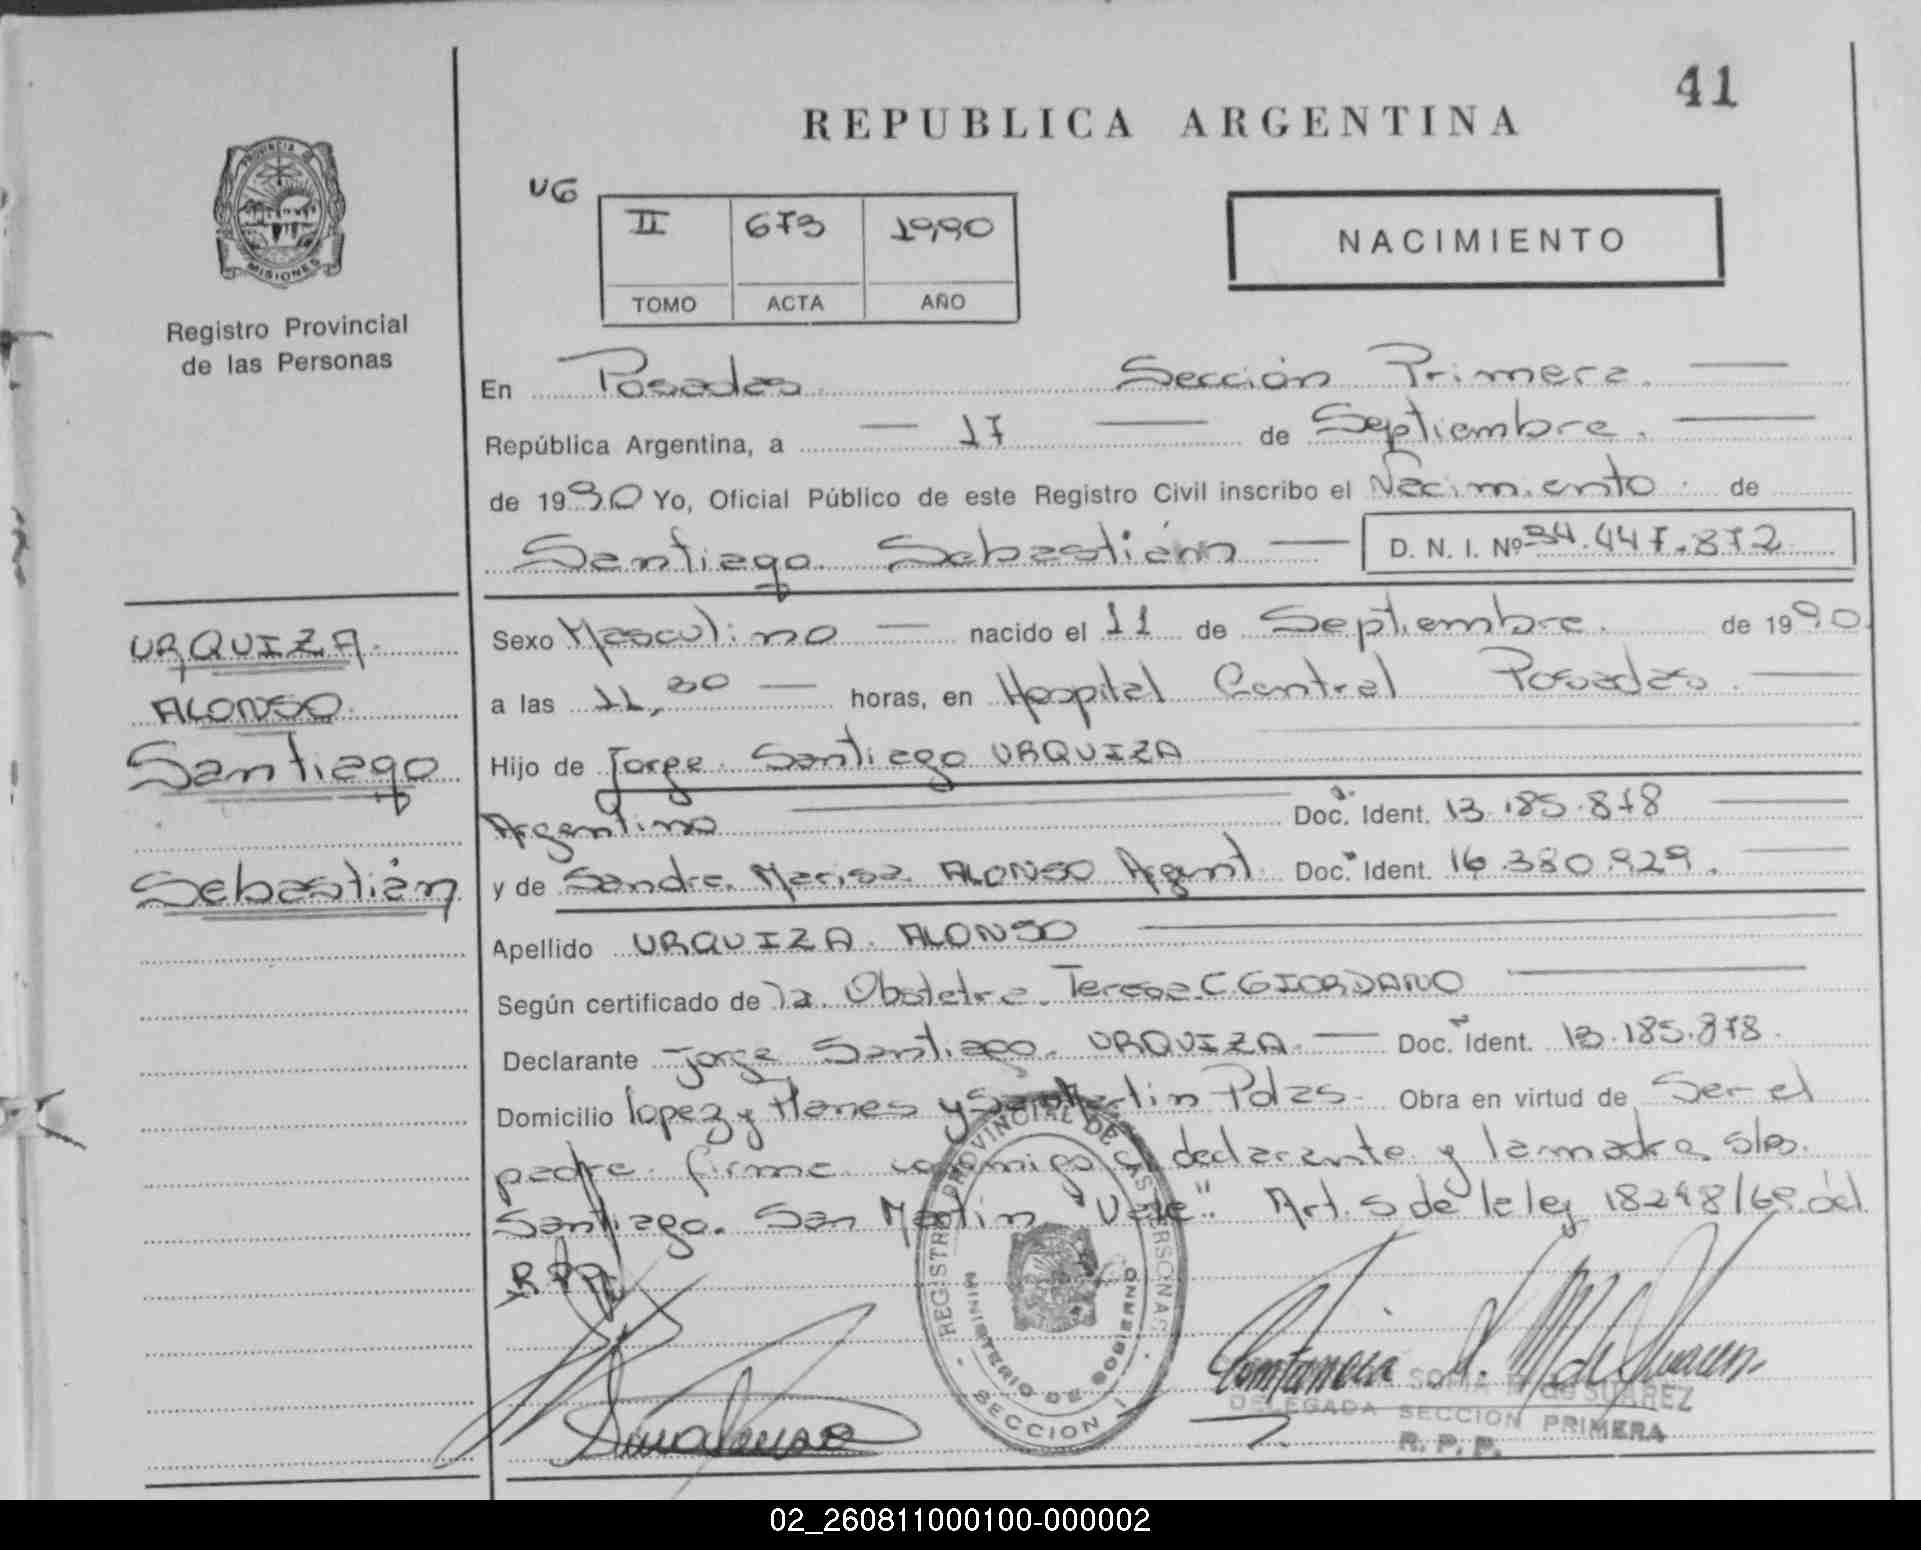 41
REPUBLICA ARGENTINA
PROVINCIA DE
MISIONES
Registro Provincial
de las Personas
UG
II 673 1990
TOMO ACTA AÑO
NACIMIENTO
En Posadas. Sección Primera.
República Argentina, a 17 de Septiembre.
de 1990 Yo, Oficial Público de este Registro Civil inscribo el Nacimiento de
Santiago Sebastián D. N. I. Nº 34.447.872
URQUIZA.
ALONSO.
Santiago
Sebastián
Sexo Masculino nacido el 11 de Septiembre. de 1990.
a las 11,30 horas, en Hospital Central Posadas.
Hijo de Jorge Santiago URQUIZA
Argentino Doc. Ident. 13.185.878
y de Sandra Marisa ALONSO Argent. Doc. Ident. 16.380.929.
Apellido URQUIZA ALONSO
Según certificado de la Obstetra Teresa C. GIORDANO
Declarante Jorge Santiago URQUIZA Doc. Ident. 13.185.878.
Domicilio lopez y Planes y San Martin Pdas. Obra en virtud de Ser el
padre. firma conmigo el declarante y la madre. s/r.
Santiago. San Martin "Vale". Art. 5 de la ley 18248/69. del
R.P.P.
REGISTRO PROVINCIAL DE LAS PERSONAS
MINISTERIO DE GOBIERNO
SECCION 1
SOFIA M. de SUAREZ
DELEGADA SECCION PRIMERA
R. P. P.
02_260811000100-000002